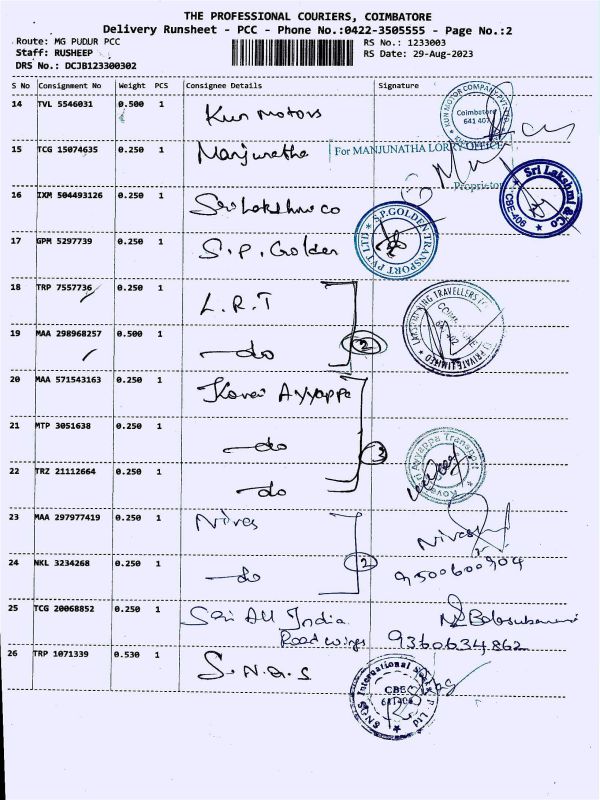 THE PROFESSIONAL COURIERS, COIMBATORE
Delivery Runsheet - PCC - Phone No.:0422-3505555 - Page No.:2
Route: MG PUDUR PCC RS No.: 1233003
Staff: RUSHEEP RS Date: 29-Aug-2023
DRS No.: DCJB123300302
S No Consignment No Weight PCS Consignee Details Signature
14 TVL 5546031 0.500 1 Kun Motors
KUN MOTOR COMPANY PVT. LTD Coimbatore 641 407
15 TCG 15074635 0.250 1 Manjunatha For MANJUNATHA LORRY OFFICE
Proprietor
16 IXM 504493126 0.250 1 Sri Lakshmi co Sri Lakshmi & Co
17 GPM 5297739 0.250 1 S.P. Golden S.P. GOLDEN TRANSPORT PVT LTD
18 TRP 7557736 0.250 1 L.R.T
19 MAA 298968257 0.500 1 do 2 TRAVELLERS PRIVATE LIMITED
20 MAA 571543163 0.250 1 Kovai Ayyappa
21 MTP 3051638 0.250 1 do 3 Kovai Ayyappa Transport
22 TRZ 21112664 0.250 1 do
23 MAA 297977419 0.250 1 Nivas Nivas
24 NKL 3234268 0.250 1 do 2 9500600904
25 TCG 20068852 0.250 1 Sai All India
Roadwings 9360634862
26 TRP 1071339 0.530 1 S.N.G.S
SNGS International Pvt Ltd